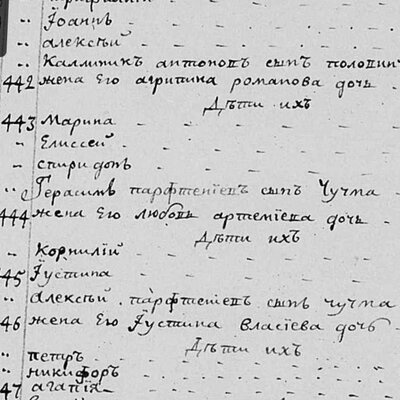 " Іоаннъ
" алексѣй
" Каллиникъ антоновъ сынъ половин
442 жена Его агрипина романова дочь
Дѣти ихъ
443 Марина
" Елиссей
" спиридонъ
" Герасимъ парфтениевъ сынъ Чучма
444 жена Его любовь артемиева дочь
Дѣти ихъ
" Корнилий
45 Іустина
" Алексѣй парфтениевъ сынъ чучма
46 жена Его Іустина власиева дочь
Дѣти ихъ
" петръ
" никифоръ
47 агапия